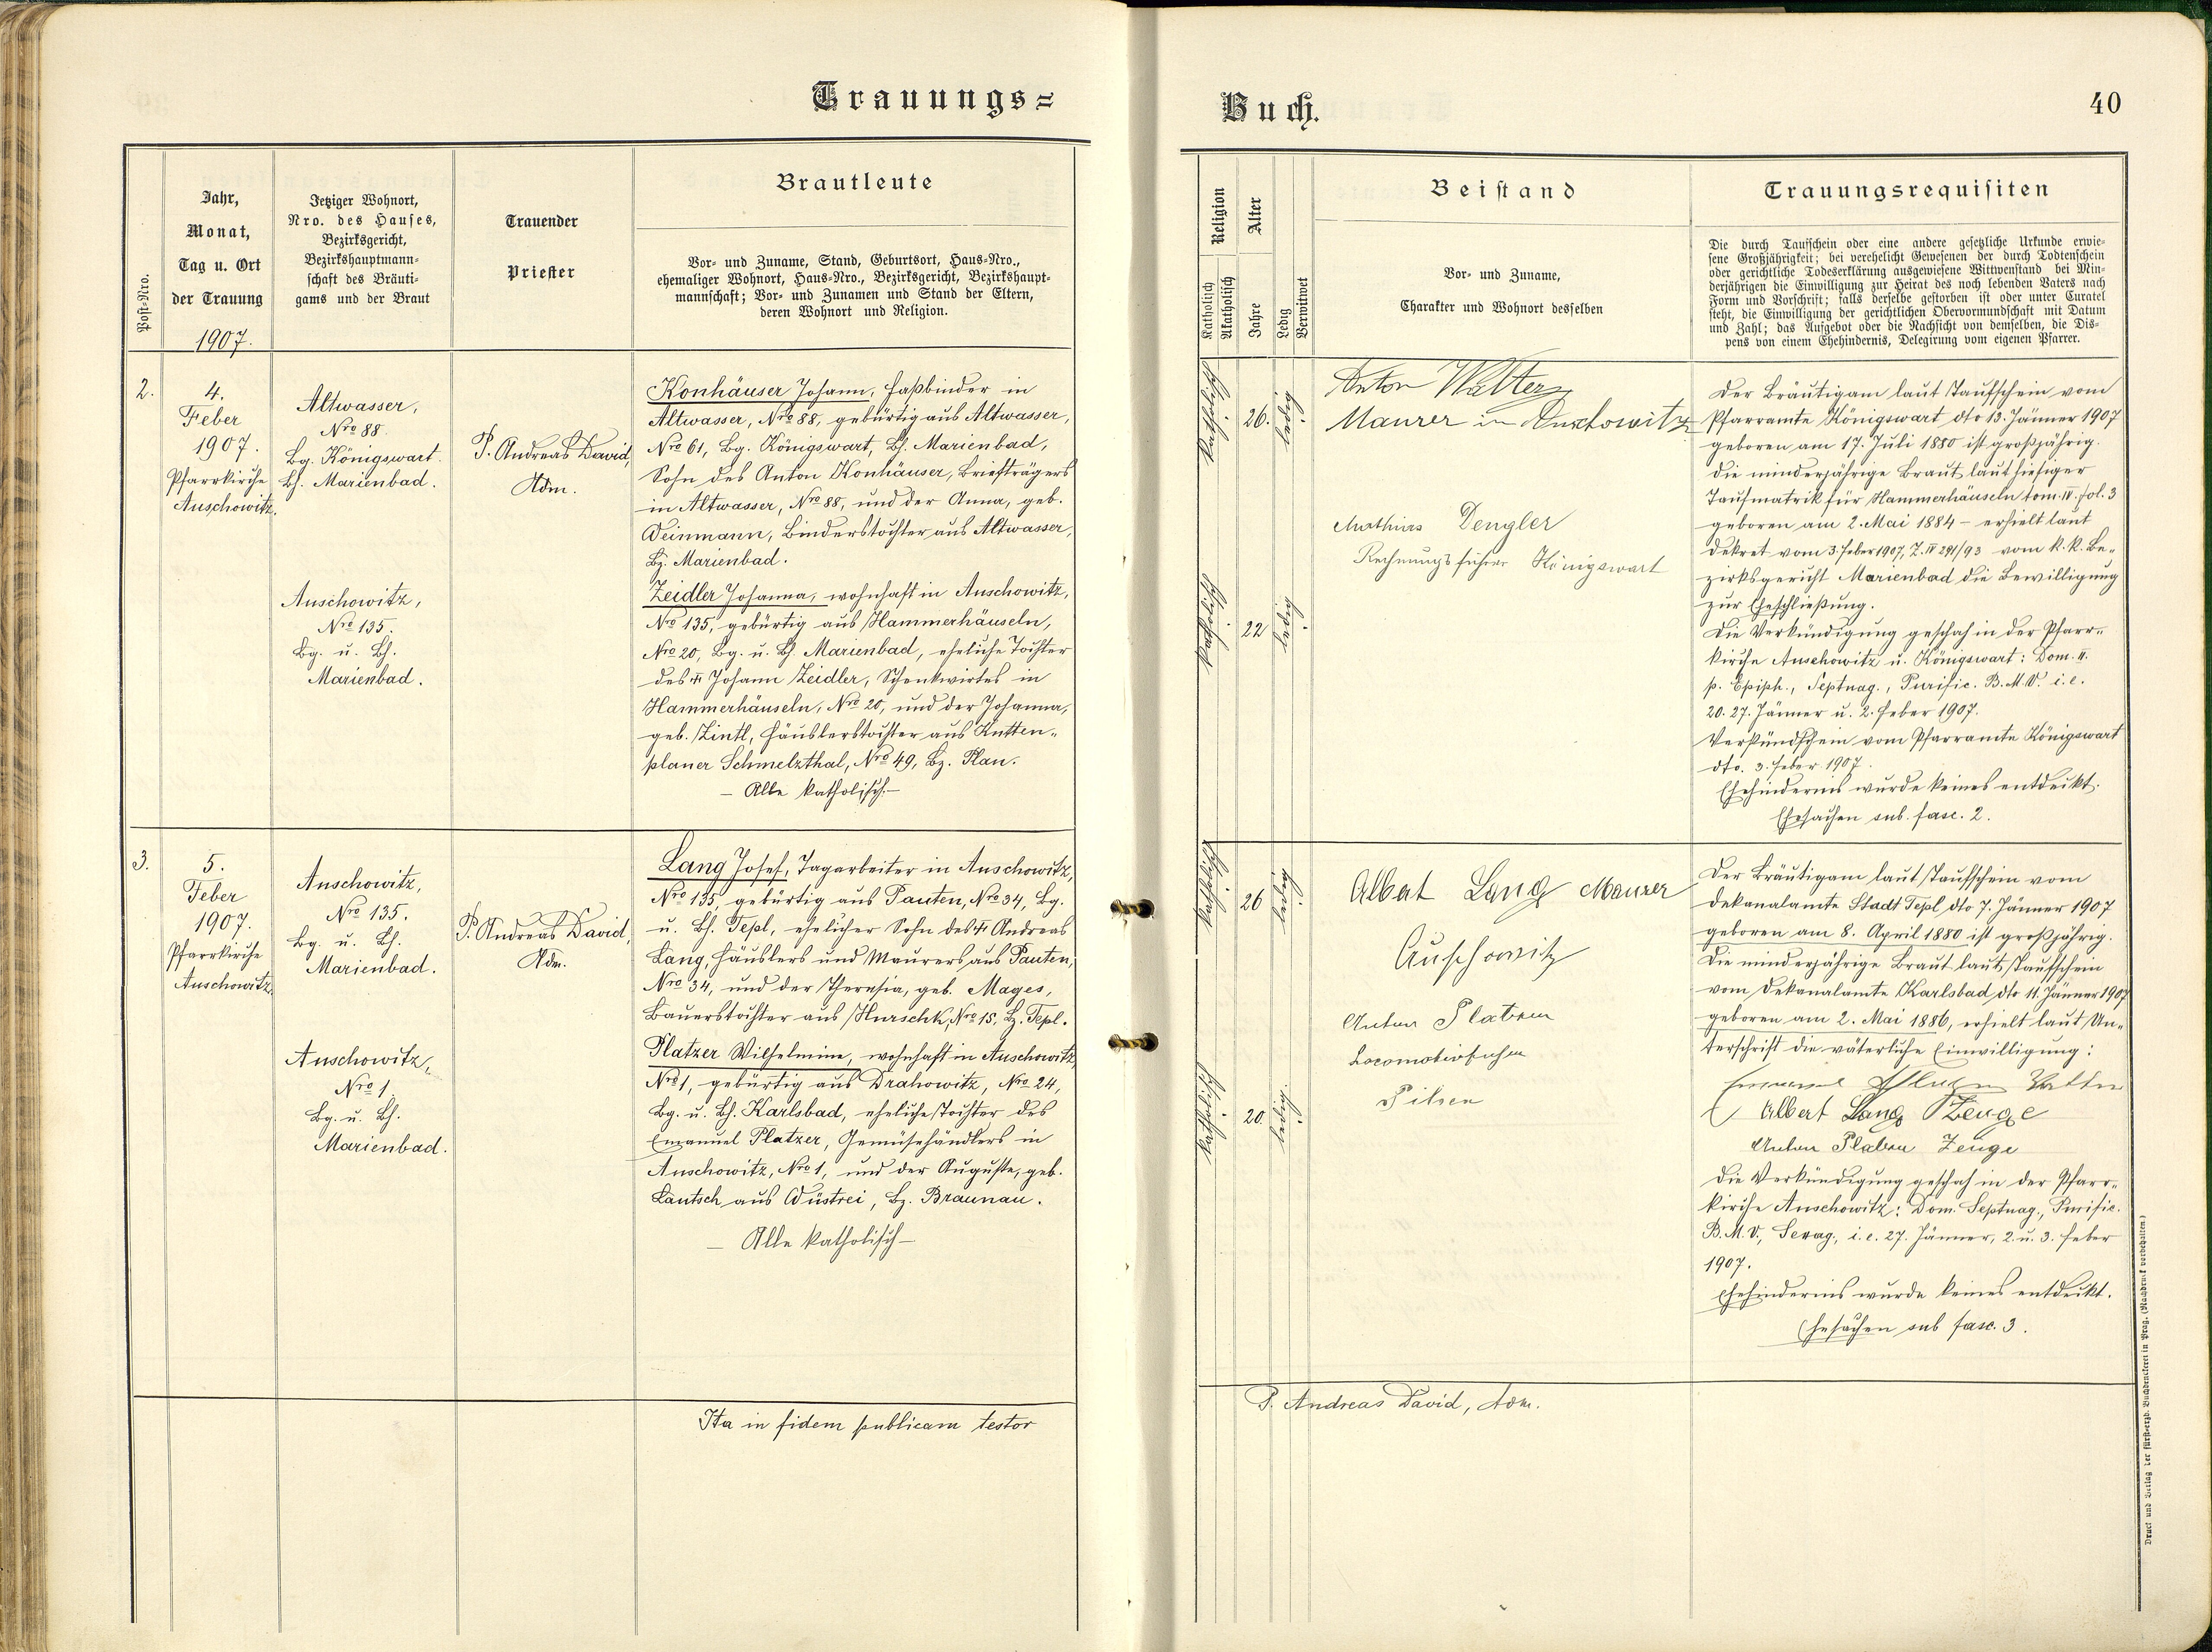 Trauungs=
Buch.
40
Post-Nro.
Jahr,
Monat,
Tag u. Ort
der Trauung
1907.
Jetziger Wohnort,
Nro. des Hauses,
Bezirksgericht,
Bezirkshauptmann-
schaft des Bräuti-
gams und der Braut
Trauender
Priester
Brautleute
Vor- und Zuname, Stand, Geburtsort, Haus-Nro.,
ehemaliger Wohnort, Haus-Nro., Bezirksgericht, Bezirkshaupt-
mannschaft; Vor- und Zunamen und Stand der Eltern,
deren Wohnort und Religion.
Religion
Katholisch
Akatholisch
Alter
Jahre
Ledig
Verwitwet
Beistand
Vor- und Zuname,
Charakter und Wohnort desselben
Trauungsrequisiten
Die durch Taufschein oder eine andere gesetzliche Urkunde erwie-
sene Großjährigkeit; bei verehelicht Gewesenen der durch Todtenschein
oder gerichtliche Todeserklärung ausgewiesene Wittwenstand bei Min-
derjährigen die Einwilligung zur Heirat des noch lebenden Vaters nach
Form und Vorschrift; falls derselbe gestorben ist oder unter Curatel
steht, die Einwilligung der gerichtlichen Obervormundschaft mit Datum
und Zahl; das Aufgebot oder die Nachsicht von demselben, die Dis-
pens von einem Ehehindernis, Delegirung vom eigenen Pfarrer.
2.
4.
Feber
1907.
Pfarrkirche
Auschowitz.
Altwasser,
Nro 88.
Bg. Königswart.
Bh. Marienbad.
Auschowitz,
Nro 135.
Bg. u. Bh.
Marienbad.
P. Andreas David,
Adm.
Konhäuser Johann, Faßbinder in
Altwasser, Nro 88, gebürtig aus Altwasser,
Nro 61, Bg. Königswart, Bh. Marienbad,
Sohn des Anton Konhäuser, Briefträgers
in Altwasser, Nro 88, und der Anna, geb.
Weinmann, Binderstochter aus Altwasser,
Bz. Marienbad.
Zeidler Johanna, wohnhaft in Auschowitz,
Nro 135, gebürtig aus Hammerhäuseln,
Nro 20, Bg. u. Bh. Marienbad, eheliche Tochter
des ✝ Johann Zeidler, Schenkwirtes in
Hammerhäuseln, Nro 20, und der Johanna,
geb. Zintl, Häuslerstochter aus Kutten-
planer Schmelzthal, Nro 49, Bz. Plan.
— Alle katholisch. —
katholisch
26.
ledig
katholisch
22
ledig
Anton Walter
Maurer in Auschowitz
Mathias Dengler
Rechnungsführer Königswart
Der Bräutigam laut Taufschein vom
Pfarramte Königswart dto 13. Jänner 1907
geboren am 17. Juli 1880 ist großjährig.
Die minderjährige Braut laut hiesiger
Taufmatrik für Hammerhäuseln tom. IV. fol. 3
geboren am 2. Mai 1884 – erhielt laut
Dekret vom 3. Feber 1907, Z. IV 291/93 vom k. k. Be-
zirksgericht Marienbad die Bewilligung
zur Eheschließung.
Die Verkündigung geschah in der Pfarr-
kirche Auschowitz u. Königswart: Dom. II.
p. Epiph., Septuag., Purific. B.M.V. i.e.
20. 27. Jänner u. 2. Feber 1907.
Verkündschein vom Pfarramte Königswart
dto. 3. Feber 1907.
Ehehindernis wurde keines entdeckt.
Ehesachen sub. fasc. 2.
3.
5.
Feber
1907.
Pfarrkirche
Auschowitz.
Auschowitz,
Nro 135.
Bg. u. Bh.
Marienbad.
Auschowitz,
Nro 1
Bg. u. Bh.
Marienbad.
P. Andreas David,
Adm.
Lang Josef, Tagarbeiter in Auschowitz,
Nro 135, gebürtig aus Pauten, Nro 34, Bg.
u. Bh. Tepl, ehelicher Sohn des ✝ Andreas
Lang, Häuslers und Maurers aus Pauten,
Nro 34, und der Theresia, geb. Mages,
Bauerstochter aus Hurschk, Nro 15, Bz. Tepl.
Platzer Wilhelmine, wohnhaft in Auschowitz,
Nro 1, gebürtig aus Drahowitz, Nro 24,
Bg. u. Bh. Karlsbad, eheliche Tochter des
Emanuel Platzer, Gemüsehändlers in
Auschowitz, Nro 1, und der Auguste, geb.
Lautsch aus Wüstrei, Bz. Braunau.
— Alle katholisch —
katholisch
26
ledig
katholisch
20.
ledig.
Albert Lang Maurer
Auschowitz
Anton Platzer
Locomotivführer
Pilsen
Der Bräutigam laut Taufschein vom
Dekanalamte Stadt Tepl dto 7. Jänner 1907
geboren am 8. April 1880 ist großjährig.
Die minderjährige Braut laut Taufschein
vom Dekanalamte Karlsbad dto 11. Jänner 1907
geboren am 2. Mai 1886, erhielt laut Un-
terschrift die väterliche Einwilligung:
Vatter
Albert Lang Zeuge
Anton Platzer Zeuge
Die Verkündigung geschah in der Pfarr-
kirche Auschowitz: Dom. Septuag., Purific.
B.M.V., Sexag., i.e. 27. Jänner, 2. u. 3. Feber
1907.
Ehehindernis wurde keines entdeckt.
Ehesachen sub fasc. 3.
Ita in fidem publicam testor
P. Andreas David, Adm.
Druck und Verlag der fürst-erzb. Buchdruckerei in Prag. (Nachdruck vorbehalten.)